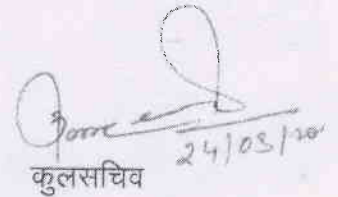 24/03/20
कुलसचिव